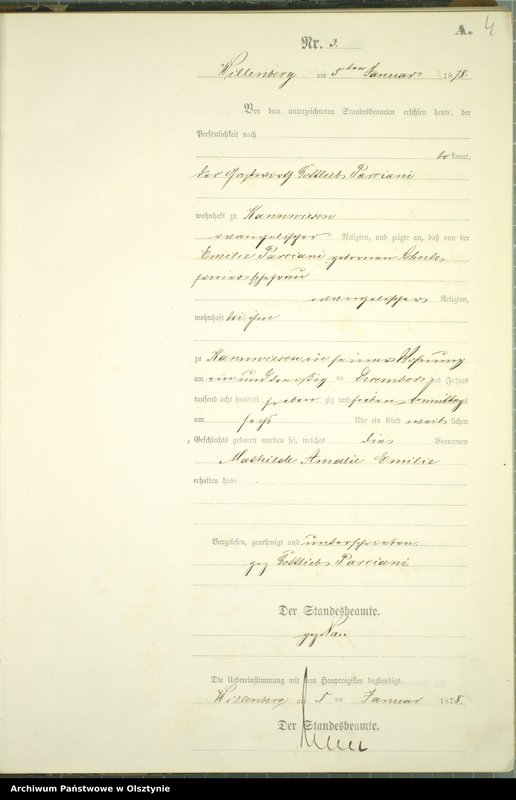 A. 4
Nr. 3.
Willenberg am 5ten Januar 1878.
Vor dem unterzeichneten Standesbeamten erschien heute, der
Persönlichkeit nach
bekannt,
der Gastwirth Gottlieb Parciani
wohnhaft zu Kannwiesen
evangelischer Religion, und zeigte an, daß von der
Emilie Parciani gebornen Schulz,
seiner Ehefrau
evangelischer Religion,
wohnhaft bei ihm
zu Kannwiesen in seiner Wohnung
am ein und dreißig ten December des Jahres
tausend acht hundert sieben zig und sieben Vormittags
um sechs Uhr ein Kind weiblichen
Geschlechts geboren worden sei, welches die Vornamen
Mathilde Amalie Emilie
erhalten habe
Vorgelesen, genehmigt und unterschrieben.
gez Gottlieb Parciani
Der Standesbeamte.
gez
Die Uebereinstimmung mit dem Hauptregister beglaubigt.
Willenberg am 5 ten Januar 1878.
Der Standesbeamte.
Archiwum Państwowe w Olsztynie